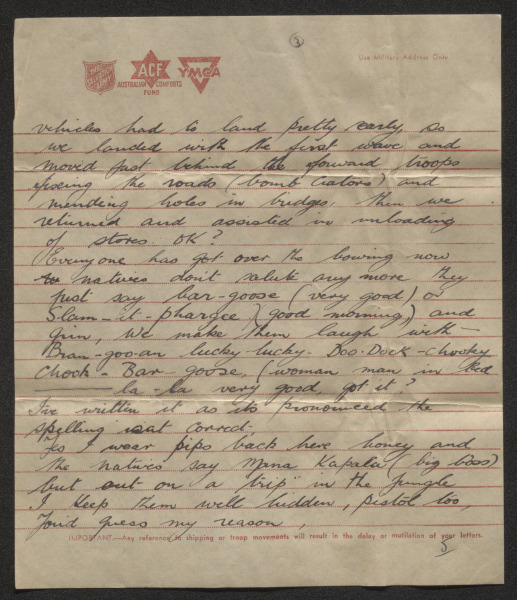 3
Use Military Address Only
THE SALVATION ARMY
ACF
AUSTRALIAN COMFORTS
FUND
YMCA
vehicles had to land pretty early, so
we landed with the first wave and
moved fast behind the forward troops
fixing the roads (bomb craters) and
mending holes in bridges. Then we
returned and assisted in unloading
of stores. OK?
Everyone has got over the bowing now
natives don't salute any more they
just say bar-goose (very good) or
Slam-it-phargee (good morning) and
Grin, We make them laugh with
Bran-goo-an lucky-lucky. Doo-Dock-chooky
Chook-Bar-goose, (woman man in bed
la-la very good, got it?
I've written it as its pronounced the
spelling isat correct.
Yes I wear pips back here honey and
the natives say Mana Kapala (big boss)
but out on a "trip" in the jungle
I keep them well hidden, pistol too,
You'd guess my reason,
IMPORTANT.—Any reference to shipping or troop movements will result in the delay or mutilation of your letters.
5